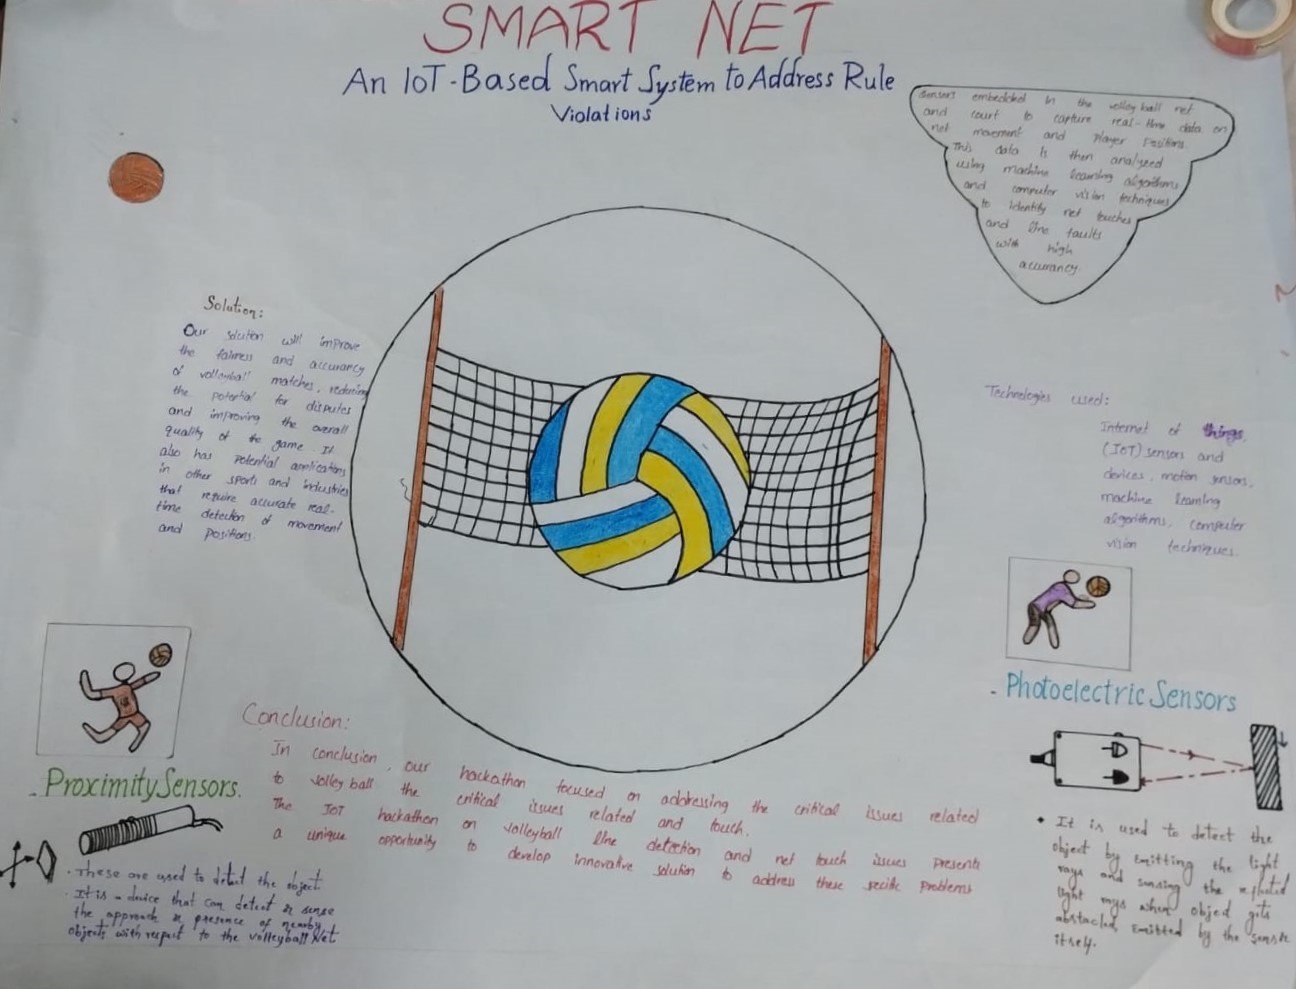 SMART NET
An IoT-Based Smart System to Address Rule
Violations
Sensors embedded in the volley ball net
and court to capture real-time data on
net movement and Player Positions.
This data is then analyzed
using machine learning algorithms
and computer vision techniques
to identify net touches
and line faults
with high
accurancy
Solution:
Our solution will improve
the fairness and accurancy
of volleyball matches, reducing
the potential for disputes
and improving the overall
quality of the game. It
also has Potential applications
in other sports and industries
that require accurate real-
time detection of movement
and positions.
Technologies used:
Internet of things,
(IoT) sensors and
devices, motion sensors,
machine learning
algorithms, computer
vision techniques.
Proximity Sensors.
These are used to detect the object.
It is a device that can detect or sense
the approach or presence of nearby
objects with respect to the volleyball Net.
Conclusion:
In conclusion, our hackathon focused on addressing the critical issues related
to volley ball the critical issues related and touch.
The IoT hackathon on volleyball line detection and net touch issues presents
a unique opportunity to develop innovative solution to address these problems
- Photoelectric Sensors
• It is used to detect the
object by emitting the light
rays and sensing the reflected
light rays when object gets
abstacled, emitted by the
itself.